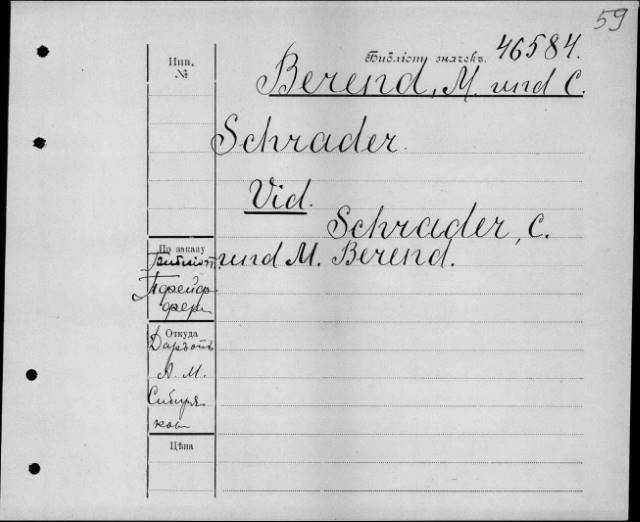 59
Инв. №
Библіот. значекъ. 46584.
Berend, M. und C.
Schrader.
Vid.
Schrader, C.
und M. Berend.
По заказу
Библіот.
Пфейф
фери
Откуда
Даръ отъ
А. М.
Сибиря
кова
Цѣна